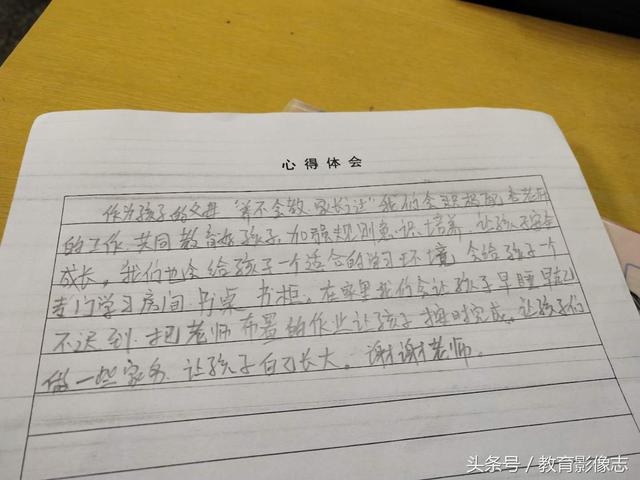 心得体会
作为孩子的父母"养不会教 家长过"我们会积极配老师
的工作 共同教育好孩子,加强规则意识培养,让孩子安全
成长。我们也会给孩子一个适合的学习环境 会给孩子一个
专门学习房间 书桌 书柜。在家里我们会让孩子早睡早起
不迟到 把老师布置的作业让孩子按时完成,让孩子们
做一些家务 让孩子自己长大。谢谢老师。
头条号/教育影像志